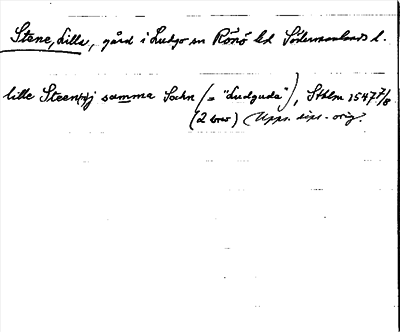 Stene, Lilla, gård i Ludgo sn Rönö hd Södermanlands l.
lille Steen(?)j samma Sochn (= "Ludguda"), Sthlm 1547 7/8
(2 brev) Upps. dipl. orig.